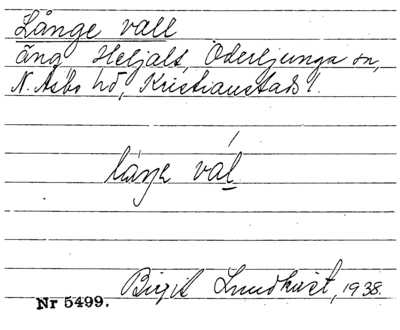 Långe vall
äng Heljalt, Oderljunga sn,
N. Åsbo hd, Kristianstads l.
låŋe vál
Birgit Lundkvist, 1938.
Nr 5499.